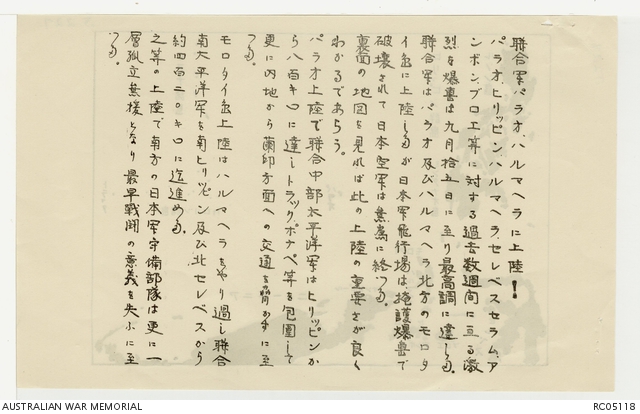 聯合軍パラオ、ハルマヘラに上陸！
パラオ、ヒリッピン、ハルマヘラ、セレベス、セラム、ア
ンボン、ブロエ等に対する過去数週間に亘る激
烈な爆撃は九月拾五日に至り最高調に達した。
聯合軍はパラオ及びハルマヘラ北方のモロタ
イ島に上陸したが日本軍飛行場は掩護爆撃で
破壊されて日本空軍は無為に終つた。
裏面の地図を見れば此の上陸の重要さが良く
わかるであらう。
パラオ上陸で聯合中部太平洋軍はヒリッピンか
ら八百キロに達しトラック、ポナペ等を包囲して
更に内地から蘭印方面への交通を脅かすに至
つた。
モロタイ島上陸はハルマヘラをやり過し聯合
南太平洋軍を南ヒリピン及び北セレベスから
約四百二〇キロに迄進めた。
之等の上陸で南方の日本軍守備部隊は更に一
層孤立無援となり最早戦闘の意義を失ふに至
つた。
AUSTRALIAN WAR MEMORIAL
RC05118